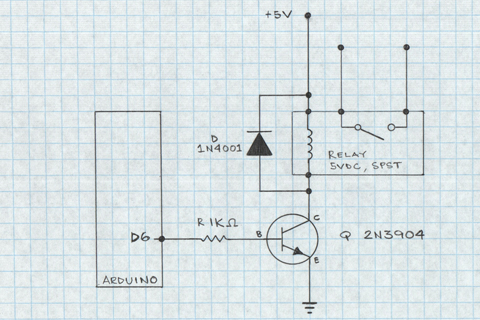 +5V
D
1N4001
RELAY
5VDC, SPST
R 1KΩ
D6
B
C
E
Q 2N3904
ARDUINO